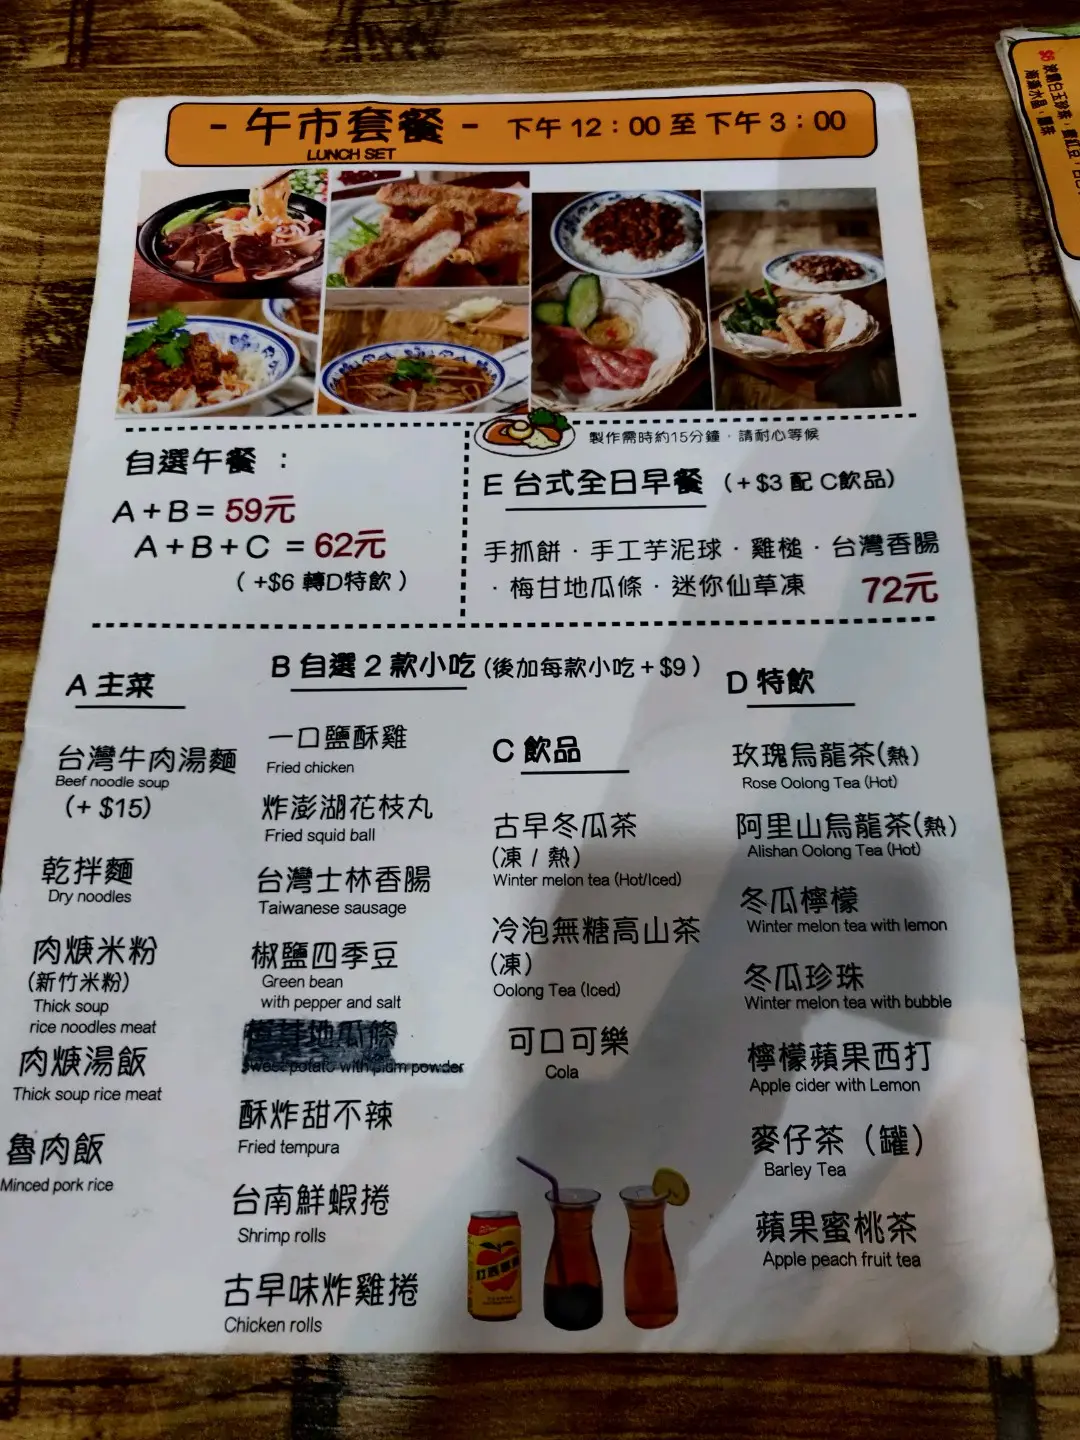 - 午市套餐 - 下午 12：00 至 下午 3：00
LUNCH SET
製作需時約15分鐘，請耐心等候
自選午餐 ：
A + B = 59元
A + B + C = 62元
（ +$6 轉D特飲 ）
E 台式全日早餐 （+ $3 配 C飲品）
手抓餅．手工芋泥球．雞槌．台灣香腸
．梅甘地瓜條．迷你仙草凍 72元
A 主菜
台灣牛肉湯麵
Beef noodle soup
(+ $15)
乾拌麵
Dry noodles
肉焿米粉
(新竹米粉)
Thick soup
rice noodles meat
肉焿湯飯
Thick soup rice meat
魯肉飯
Minced pork rice
B 自選 2 款小吃 (後加每款小吃 + $9 )
一口鹽酥雞
Fried chicken
炸澎湖花枝丸
Fried squid ball
台灣士林香腸
Taiwanese sausage
椒鹽四季豆
Green bean
with pepper and salt
梅甘地瓜條
Sweet potato with plum powder
酥炸甜不辣
Fried tempura
台南鮮蝦捲
Shrimp rolls
古早味炸雞捲
Chicken rolls
C 飲品
古早冬瓜茶
(凍 / 熱)
Winter melon tea (Hot/Iced)
冷泡無糖高山茶
(凍)
Oolong Tea (Iced)
可口可樂
Cola
D 特飲
玫瑰烏龍茶(熱)
Rose Oolong Tea (Hot)
阿里山烏龍茶(熱)
Alishan Oolong Tea (Hot)
冬瓜檸檬
Winter melon tea with lemon
冬瓜珍珠
Winter melon tea with bubble
檸檬蘋果西打
Apple cider with Lemon
麥仔茶（罐）
Barley Tea
蘋果蜜桃茶
Apple peach fruit tea